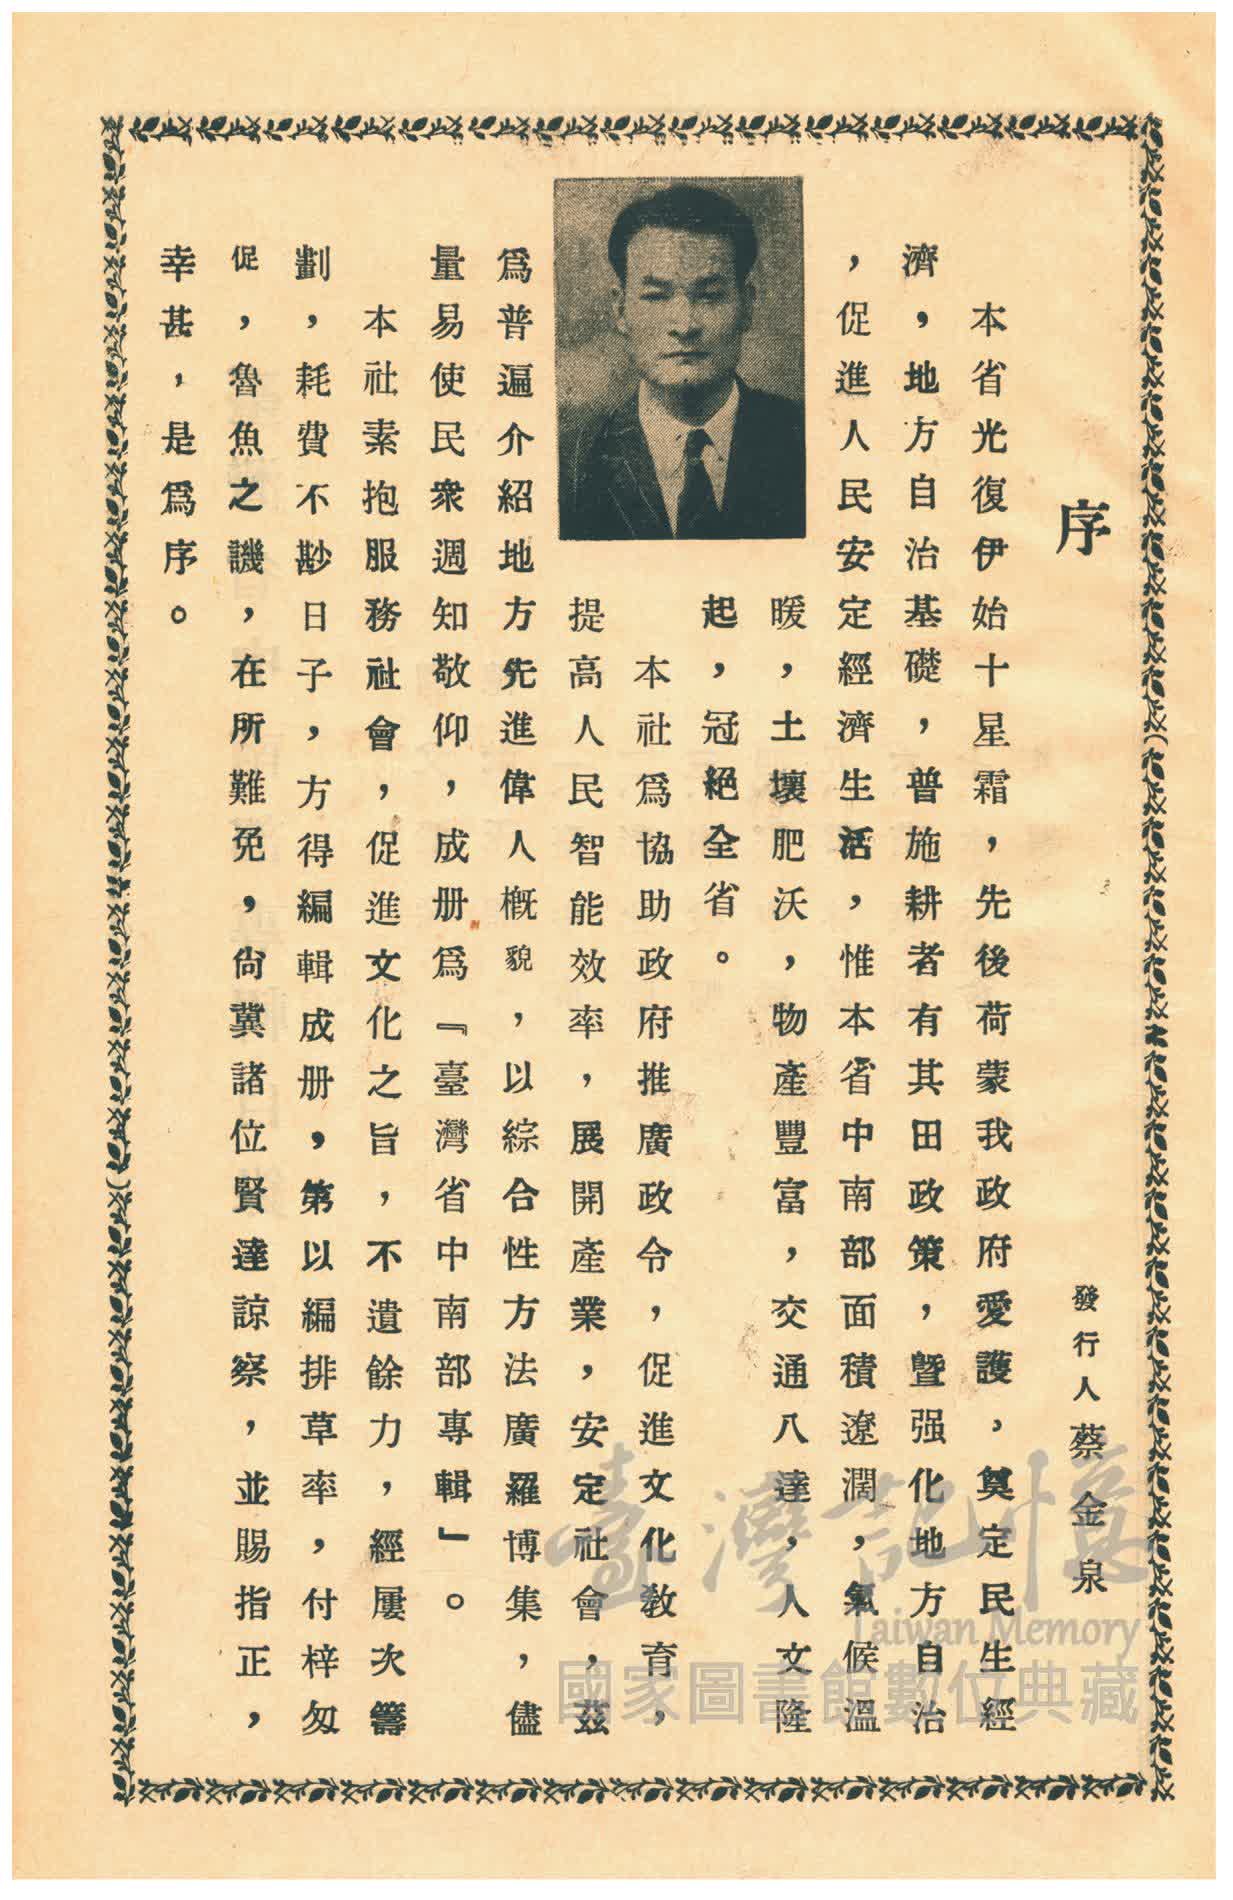 序
發行人蔡金泉
本省光復伊始十星霜，先後荷蒙我政府愛護，奠定民生經
濟，地方自治基礎，普施耕者有其田政策，暨强化地方自治
，促進人民安定經濟生活，惟本省中南部面積遼濶，氣候溫
暖，土壤肥沃，物產豐富，交通八達，人文隆
起，冠絕全省。
本社爲協助政府推廣政令，促進文化教育，
提高人民智能效率，展開產業，安定社會，茲
爲普遍介紹地方先進偉人概貌，以綜合性方法廣羅博集，儘
量易使民衆週知敬仰，成册爲『臺灣省中南部專輯』。
本社素抱服務社會，促進文化之旨，不遺餘力，經屢次籌
劃，耗費不尠日子，方得編輯成册，第以編排草率，付梓匆
促，魯魚之譏，在所難免，尙冀諸位賢達諒察，並賜指正，
幸甚，是爲序。
臺灣記憶
Taiwan Memory
國家圖書館數位典藏